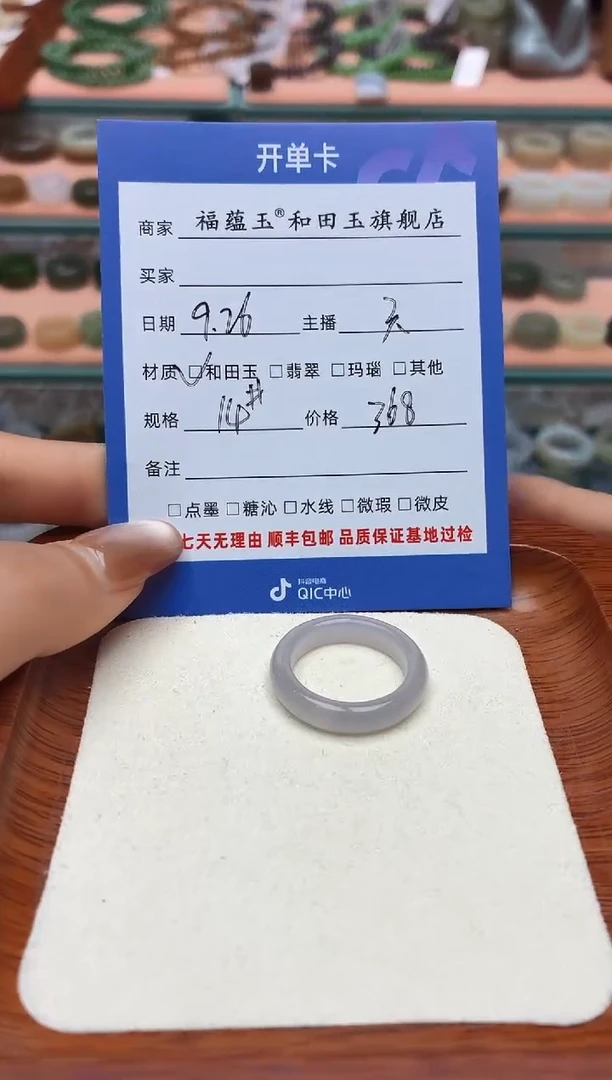 开单卡
商家 福蕴玉®和田玉旗舰店
买家
日期 9.26 主播 天
材质 ☑和田玉 □翡翠 □玛瑙 □其他
规格 14# 价格 368
备注
□点墨 □糖沁 □水线 □微瑕 □微皮
七天无理由 顺丰包邮 品质保证基地过检
抖音电商
QIC中心